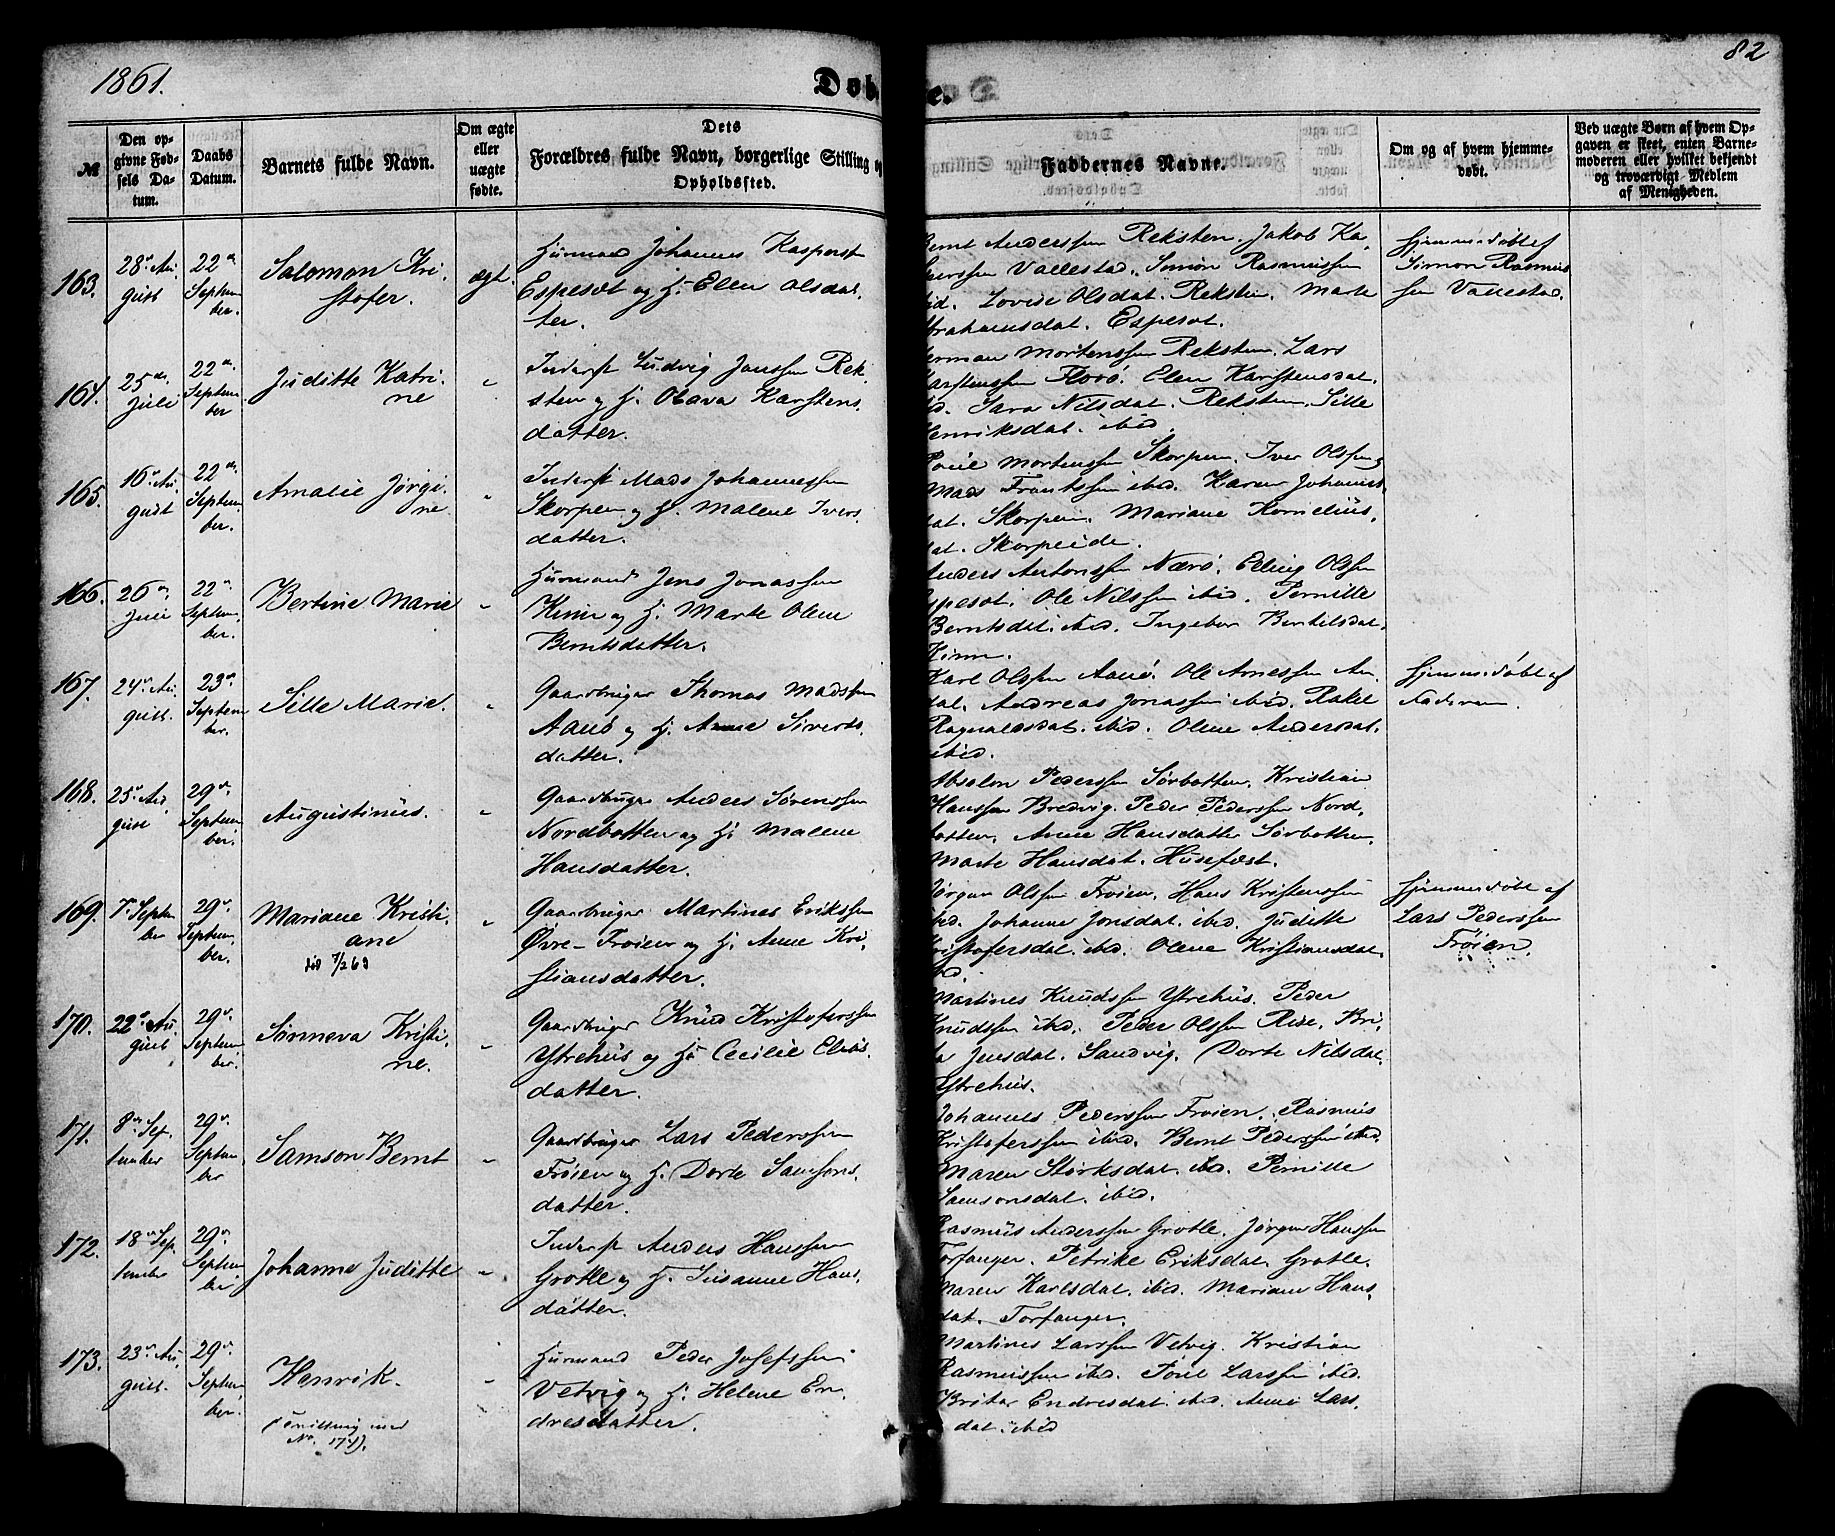 1861.
82
Døb
e.
№
Den op-
givne Fød-
sels Da-
tum.
Daabs
Datum.
Barnets fulde Navn.
Om ægte
eller
uægte
fødte.
Dets
Forældres fulde Navn, borgerlige Stilling og
Opholdssted.
Faddernes Navne.
Om og af hvem hjemme-
døbt.
Ved uægte Børn af hvem Op-
gaven er skeet, enten Barne-
moderen eller hvilket bekjendt
og troværdigt Medlem
af Menigheden.
163.
28de Au-
gust
22de
Septem-
ber.
Salomon Kri-
stofer.
ægt.
Huusmand Johannes Kaspersen
Espesæt og H. Elen Olsdat-
ter.
Bernt Anderssen Reksten. Jakob Ka-
sperssen Vallestad. Simon Rasmussen
ibid. Lovise Olsdat. Reksten. Marte
Abrahamsdat. Espeset.
Hjemmedøbt af
Simon Rasmus-
sen Vallestad.
164.
25de
Juli
22de
Septem-
ber
Juditte Katri-
ne
"
Inderst Ludvig Janssen Rek-
sten og H. Olava Karstens-
datter.
Herman Mortenssen Reksten. Lars
Karstenssen Florø. Elen Karstensdat.
ibid. Sara Nilsdat. Reksten. Sille
Henriksdat. ibid.
165.
16de Au-
gust
22de
Septem-
ber.
Amalie Jørgi-
ne.
"
Inderst Mads Johannessen
Skorpen og H. Malene Ivers-
datter.
Poul Mortenssen Skorpen. Iver Olssen og
Mads Frantssen ibid. Karen Johannes-
dat. Skorpen. Mariane Kornelius-
dat. Skorpeide.
166.
26de
Juli
22de
Septem-
ber.
Bertine Marie
"
Huusmand Jens Jonassen
Kinn og H. Marte Oline
Berntsdatter.
Anders Antonssen Nærø. Elling Olssen
Espeset. Ole Nilssen ibid. Pernille
Berntsdat. ibid. Ingebor Bertelsdat.
Kinn.
167.
24de Au-
gust.
23de
Septem-
ber.
Sille Marie.
"
Gaardbruger Thomas Madssen
Aanø og H. Anne Siverts-
datter.
Karl Olssen Aanø. Ole Arnessen An-
dal. Andreas Jonassen ibid. Rakel
Ragnaldsdat. ibid. Oline Andersdat.
ibid.
Hjemmedøbt af
Faderen.
168.
25de Au-
gust
29de
Septem-
ber.
Augustinus.
"
Gaardbruger Anders Sørenssen
Nordbotten og H. Malene
Hansdatter.
Absalon Pederssen Sørbotten. Kristian
Hanssen Bredvig. Peder Pederssen Nord-
botten. Anne Hansdatter Sørbotten.
Marte Hansdat. Husefæst.
169.
7de Septem-
ber
29de
Septem-
ber.
Mariane Kristi-
ane
død 7/2 63
"
Gaardbruger Martines Erikssen
Øvre-Frøien og H. Anne Kri-
stiansdatter.
Jørgen Olssen Frøien. Hans Kristenssen
ibid. Johanne Jonsdat. ibid. Juditte
Kristofersdat. ibid. Oline Kristiansdat.
ibid.
Hjemmedøbt af
Lars Pederssen
Frøien.
170.
22de Au-
gust
29de
Septem-
ber.
Sønneva Kristi-
ne.
"
Gaardbruger Knud Kristoferssen
Ytrehus og H. Cecilie Elias-
datter.
Martines Knudssen Ytrehus. Peder
Knudssen ibid. Peder Olssen Rise. Bri-
ta Jensdat. Sandvig. Dorte Nilsdat.
Ytrehus.
171.
8de Sep-
tember
29de
Septem-
ber
Samson Bernt
"
Gaardbruger Lars Pederssen
Frøien og H. Dorte Samsons-
datter.
Johannes Pederssen Frøien. Rasmus
Kristoferssen ibid. Bernt Pederssen ibid.
Maren Størksdat. ibid. Pernille
Samsonsdat. ibid.
172.
18de Sep-
tember
29de
Septem-
ber
Johanne Juditte
"
Inderst Anders Hanssen
Grotle og H. Susanne Hans-
datter.
Rasmus Anderssen Grotle. Jørgen Hanssen
Torfanger. Petrike Eriksdat. Grotle.
Maren Karlsdat. ibid. Mariane Hans-
dat. Torfanger.
173.
23de Au-
gust.
29de
Septem-
ber.
Henrik.
(Tvilling med
No. 174).
"
Huusmand Peder Josefssen
Vetvig og H. Helene En-
dresdatter.
Martines Larssen Vetvig. Kristian
Rasmussen ibid. Poul Larssen ibid.
Britar Endresdat. ibid. Anne Lars-
dat. ibid